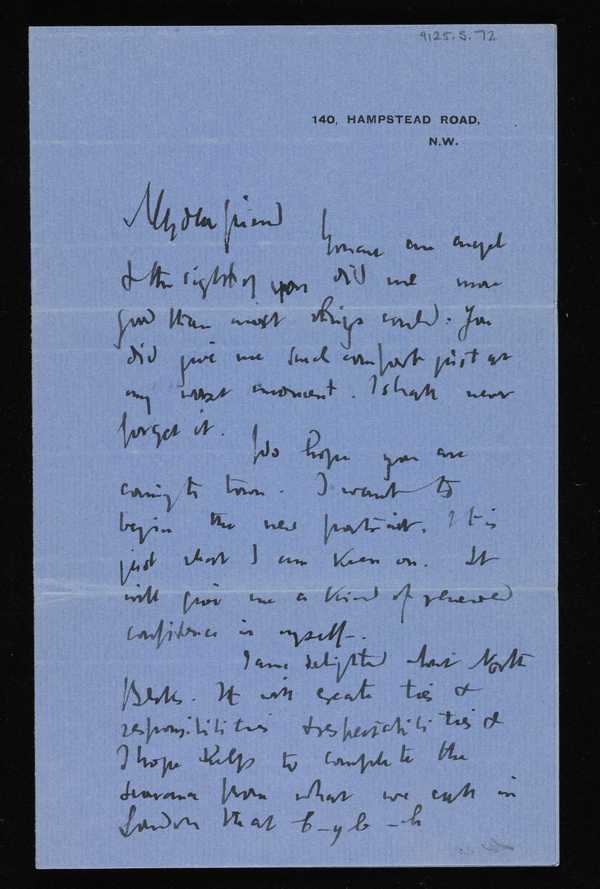 9125.5.72
140, HAMPSTEAD ROAD,
N.W.
My dear friend
You are an angel
& the sight of you did me more
good than most things could. You
did give me such comfort just at
my worst moment. I shall never
forget it.
I do hope you are
coming to town. I want to
begin the new portrait. It is
just what I am keen on. It
will give me a kind of renewed
confidence in myself.
I am delighted about North
Berks. It will create ties &
responsibilities & respectabilities &
I hope helps to complete the
severance from what we call in
London that b-y b-h